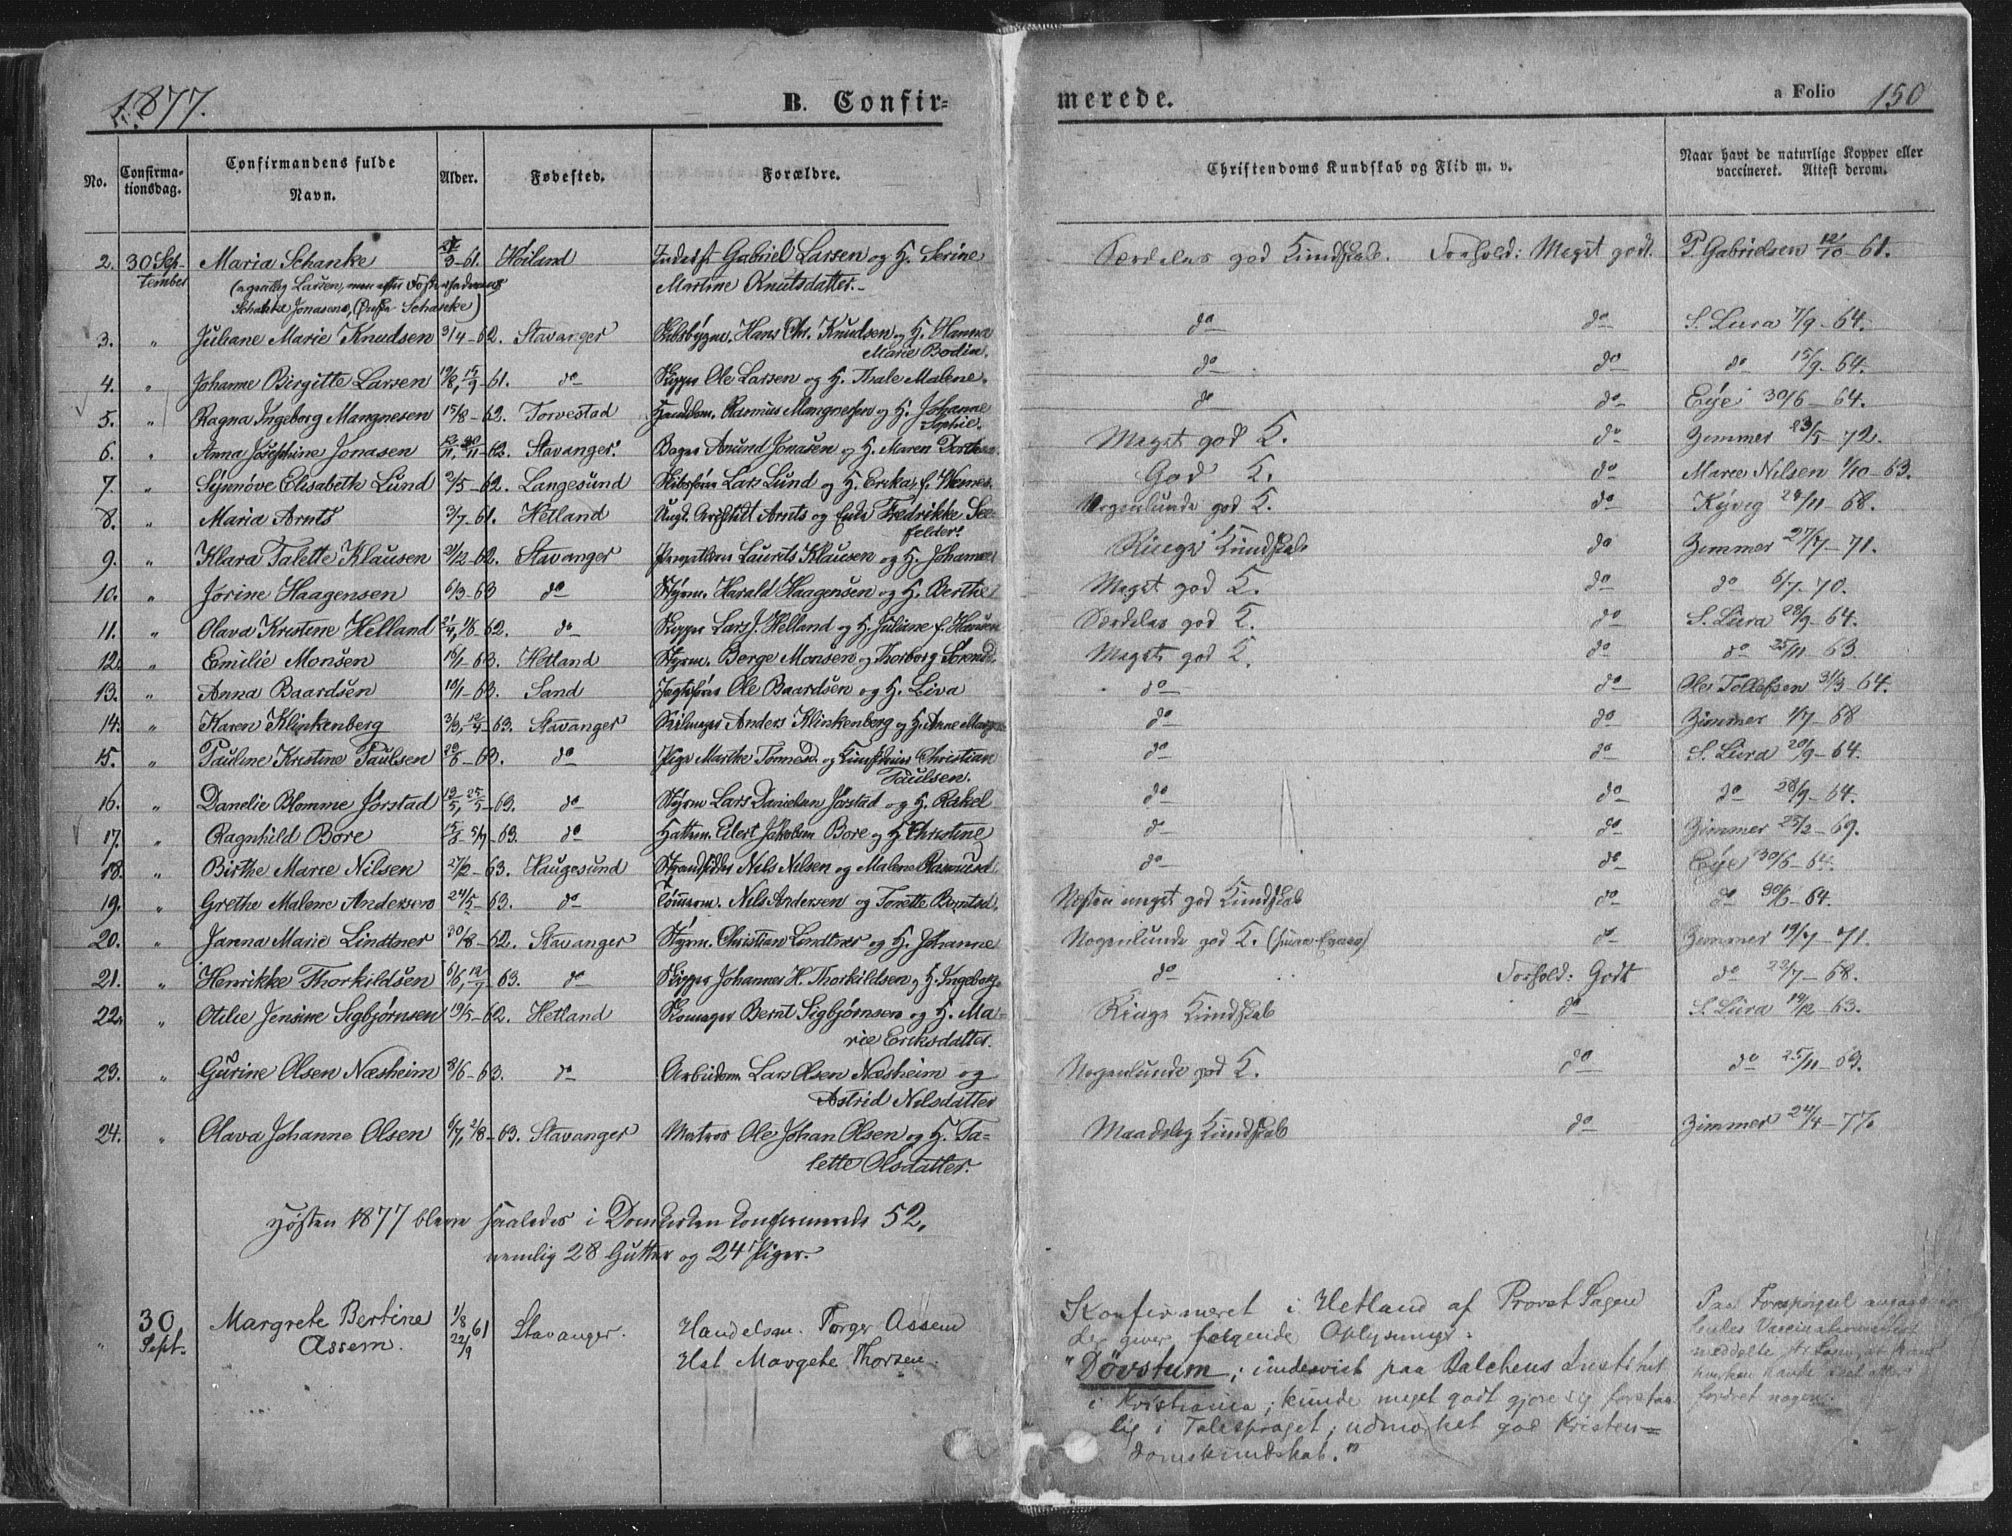 1877.
B. Confir=
merede.
a Folio 150
No.
Confirma-
tionsdag.
Confirmandens fulde
Navn.
Alder.
Fødested.
Forældre.
Christendoms Kundskab og Flid m. v.
Naar havt de naturlige Kopper eller
vaccineret. Attest derom.
2. 30 Sep- Maria Schanke 3-61. Høiland Gabriel Larsen og H. Serine Særdeles god Kundskab. Forhold: Meget godt. P. Gabrielsen 12/10-61.
tember Larsen, men efter Martine Knutsdatter.
Schanke Jonasens, Schanke)
3. " Juliane Marie Knudsen 3/4-62. Stavanger Hans Chr. Knudsen og H. Hanna do do S. Lura 7/9-64.
Marie Bodin.
4. " Johanne Birgitte Larsen 19/8, 15/9-61. do Skipper Ole Larsen og H. Thale Malene. do do do 15/9-64.
5. " Ragna Ingeborg Mangnesen 15/8-62. Torvestad Handelsm. Rasmus Mangnesen og H. Johanne do do Eye 30/6-64.
Sophie.
6. " Anna Josephine Jonasen 62. Stavanger. Bager Anund Jonasen og H. Maren Dorthea Meget god K. do Zimmer 23/5-72.
7. " Synnöve Elisabeth Lund 2/5-62. Langesund Lars Lund og H. Erika, f. Wemes. God K. do Maree Nilsen 1/10-63.
8. " Maria Arnts 3/7-61. Hetland Arnts og Fredrikke See- Nogenlunde god K. do Kyvig 24/11-68.
felder.
9. " Klara Talette Klausen 2/12-62. Stavanger Laurits Klausen og H. Johanne Ringe Kundskab do Zimmer 27/7-71.
10. " Jorine Haagensen 6/3-63 do Styrm. Harald Haagensen og H. Berthe Meget god K. do do 6/7-70.
11. " Olava Kristine Helland 62. do Skipper Lars J. Helland og H. Juliane f. Hansen Særdeles god K. do S. Lura 28/9-64.
12. " Emilie Monsen 16/1-63. Hetland Styrm. Berge Monsen og Thorborg Sörensd. Meget god K. do do 25/11 63.
13. " Anna Baardsen 19/1-63. Sand Ole Baardsen og H. Liva do do Ole Tollefsen 31/3-64.
14. " Karen Klinkenberg 63. Stavanger Anders Klinkenberg og H. Anne do do Zimmer 1/7-68
15. " Pauline Kristine Paulsen 63. do Pige Marthe Tönnesd. og Christian do do S. Lura 20/9-64.
Paulsen.
16. " Danelie Blomme Jörstad 19/5, 25/5-63. do Styrm Lars Danielsen Jörstad og H. Rakel do do do 28/9-64.
17. " Ragnhild Bore 63. do Eilert Jakobsen Bore og H. Christine do do Zimmer 25/2-69.
18. " Birthe Marie Nilsen 27/2-63. Haugesund Nils Nilsen og Malene Rasmusd. do do Eye 30/6-64.
19. " Grethe Malene Andersen 24/5-63. do Tömmerm. Nils Andersen og Tonette Berntsd. Nesten meget god Kundskab do do 30/6-64.
20. " Jarena Marie Lindtner 30/8-62. Stavanger Styrm. Christian Lindtner og H. Johanne Nogenlunde god K. do Zimmer 19/7-71.
21. " Henrikke Thorkildsen 63. do Skipper Johannes H. Thorkildsen og H. Ingeborg do Forhold: Godt do 22/7-68.
22. " Otilie Jensine Sigbjørnsen 19/5-62. Hetland Skomager Bernt Sigbjørnsen og H. Ma- Ringe Kundskab do S. Lura 19/12-63.
rie Eriksdatter.
23. " Gurine Olsen Næsheim 3/6-63. do Arbeidsm. Lars Olsen Næsheim og Nogenlunde god K. do do 25/11-63.
Astrid Nilsdatter
24. " Olava Johanne Olsen 6/7, 2/8-63. Stavanger Matros Ole Johan Olsen og H. Ta- Maadelig Kundskab do Zimmer 24/4-77.
lette Olsdatter.
Høsten 1877 bleve saaledes i Domkirken konfirmerede 52,
nemlig 28 Gutter og 24 Piger.
" 30 Sept. Margrete Bertine Assem. 1/8 22/9 61 Stavanger. Handelsm. Torger Assem
Hst Margete Thorsen.
Konfirmeret i Hetland af Provst Sagen
der giver følgende Oplysninger:
"Døvstum; undervist paa Balchens Institut
i Kristiania; kunde meget godt gjøre sig forstaa-
lig i Talesproget; udmærket god Kristen-
domskundskab."
Paa Forespørgsel angaaende
hendes Vaccinationsattest
meddelte
havde
fordret nogen.